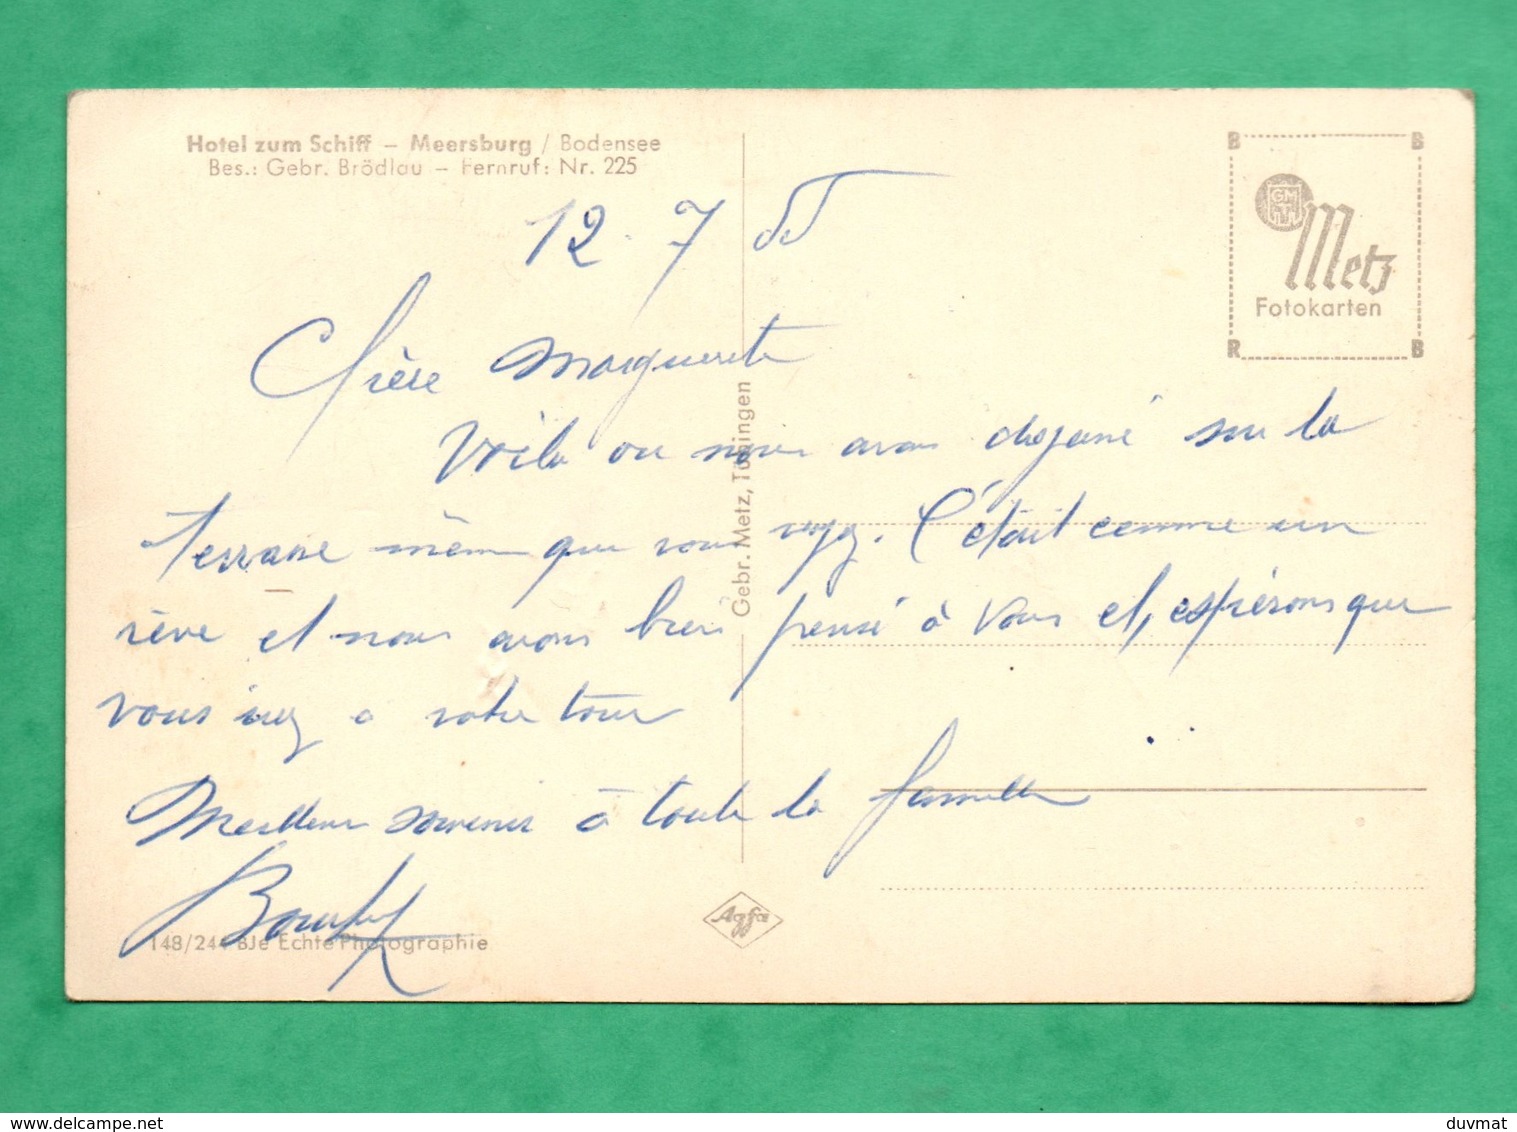 Hotel zum Schiff – Meersburg / Bodensee
Bes.: Gebr. Brödlau – Fernruf: Nr. 225
B B
GM
Metz
Fotokarten
R B
12 . 7 55
Chère Marguerite
Voila ou nous avons dejeuné sur la
terrasse même que vous voyez. C'était comme un
rêve et nous avons bien pensé à vous et, espérons que
vous irez a votre tour
Meilleurs souvenirs à toute la famille
Gebr. Metz, Tübingen
Agfa
148/244 BJe Echte Photographie
delcampe.net
duvmat